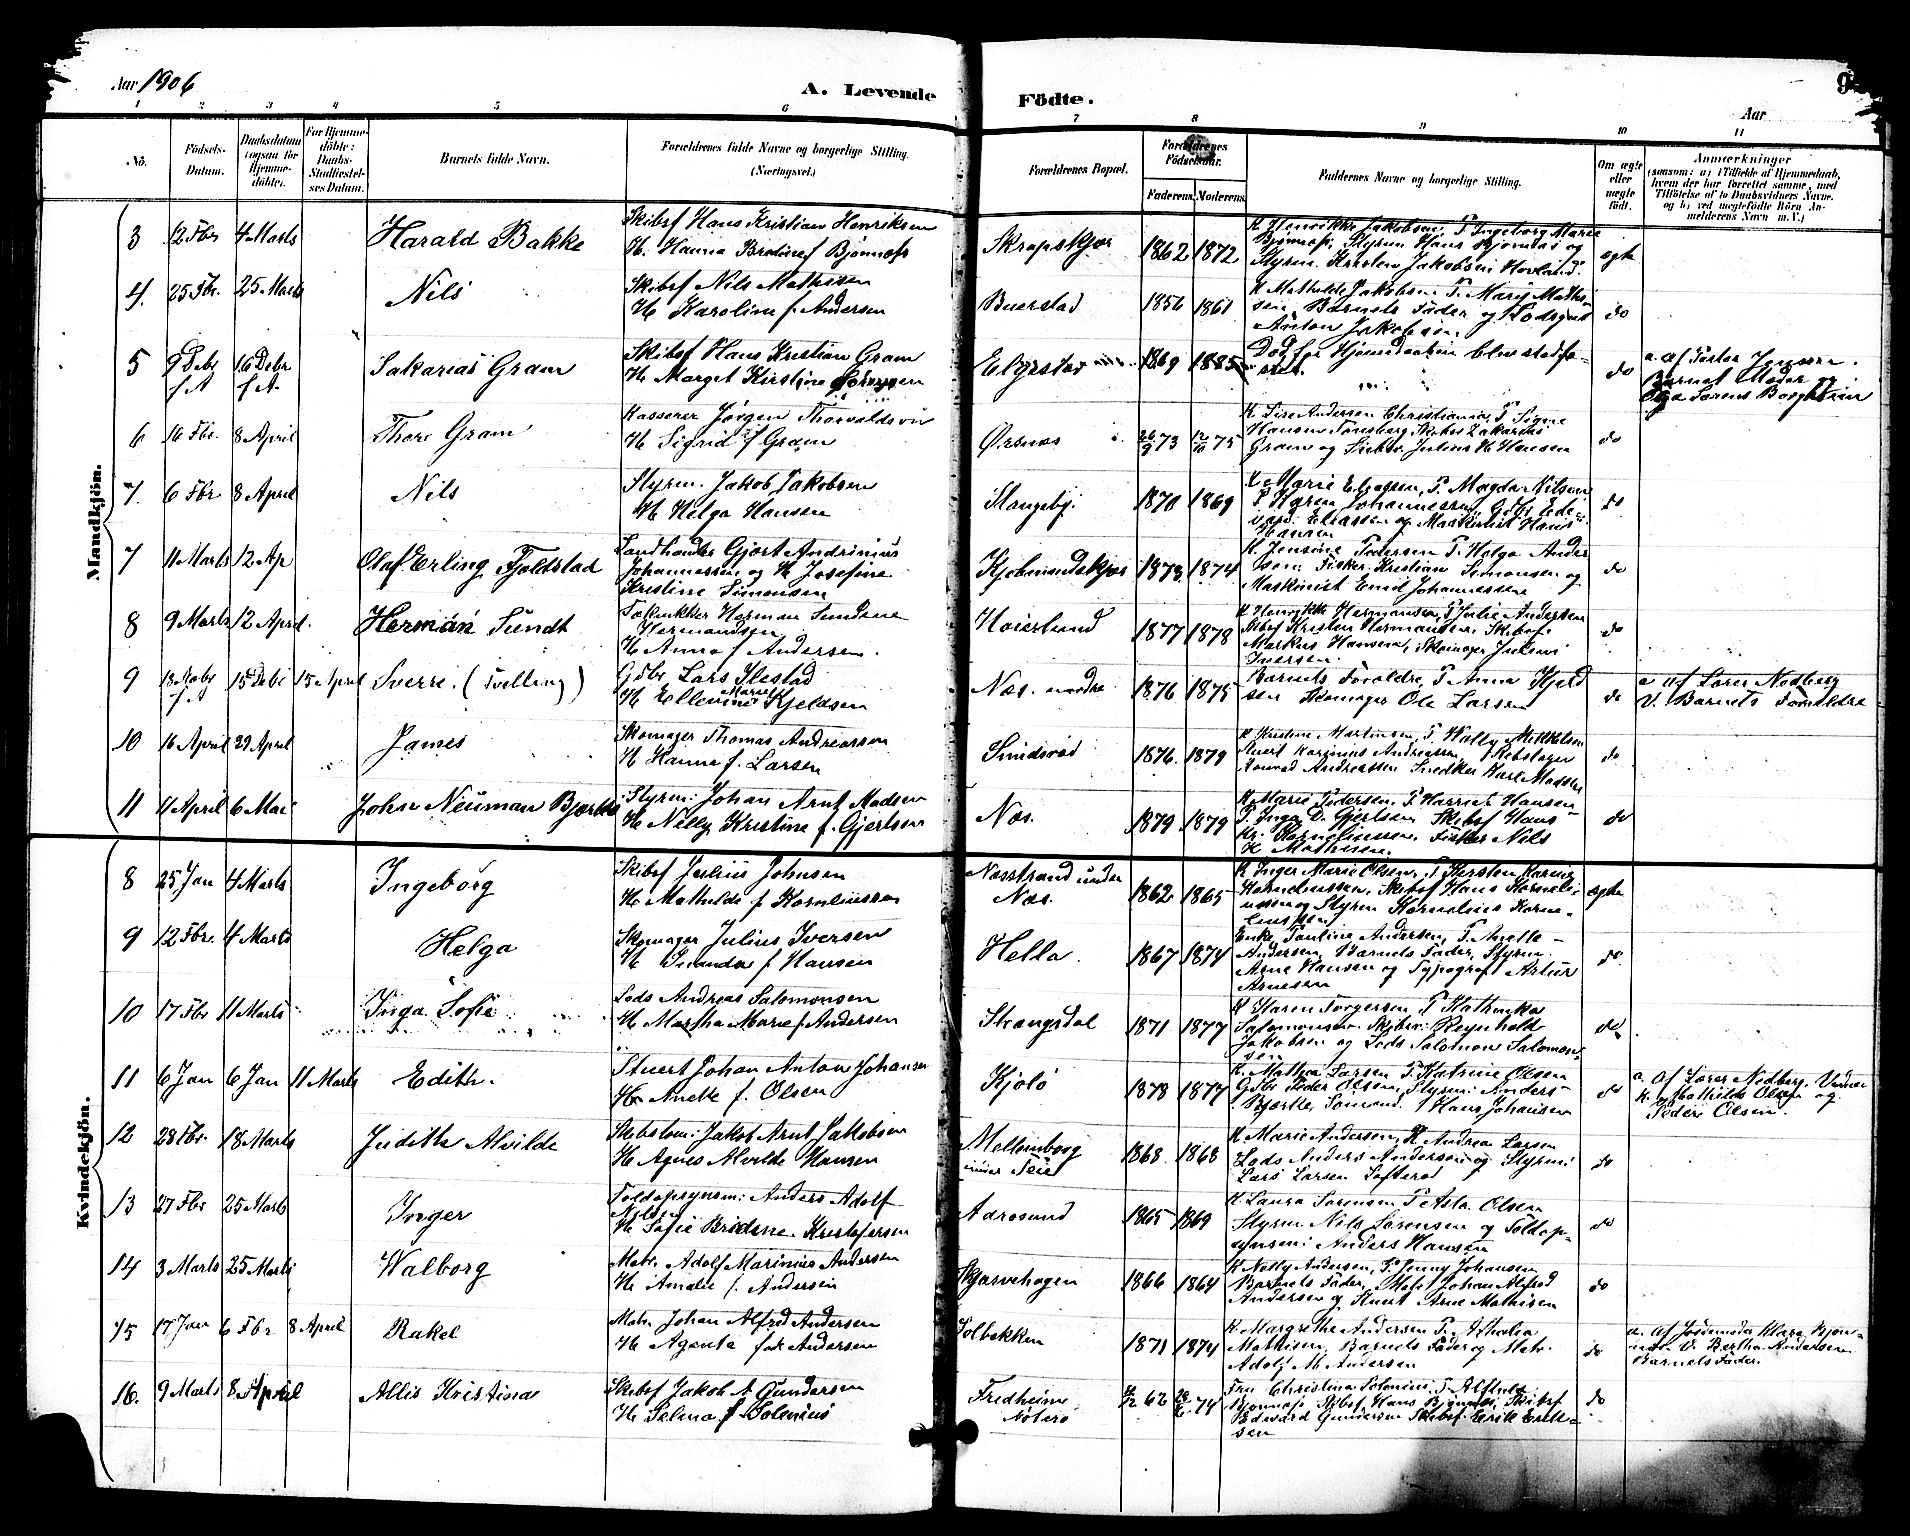 Aar 1906
A. Levende
Födte.
Aar
1 2 3 4 5 6
7 8 9 10 11
No.
Födsels-
Datum.
Daabsdatum
(ogsaa for
Hjemme-
döbte).
For Hjemme-
döbte:
Daabs-
Stadfæstel-
ses Datum.
Barnets fulde Navn.
Forældrenes fulde Navne og borgerlige Stilling.
(Næringsvei.)
Forældrenes Bopæl.
Forældrenes
Födselsaar.
Faderens. Moderens.
Faddernes Navne og borgerlige Stilling.
Om ægte
eller
uægte
født.
Anmærkninger
(saasom: a) i Tilfælde af Hjemmedaab,
hvem der har forrettet samme, med
Tilföielse af to Daabsvidners Navne.
og b) ved uægtefödte Börn An-
melderens Navn m. V.)
Mandkjön.
3 12 Fbr 4 Marts Harald Bakke
Skibsf Hans Kristian Henriksen
H. Hanna Bredine f Bjønnæss
Skrapskjær 1862 1872
K Henrikke Jakobsen, P. Ingeborg Marie
Bjønnæs, Styrm Hans Bjønnæs og
Styrm. Kristen Jakobsen Hovland.
ægte
4. 25 Fbr. 25 Marts Nils
Skibsf Nils Mathisen
H. Karoline f. Andersen
Buerstad 1856 1861
K Mathilde Jakobsen. P. Mary Mathi-
sen, Barnets Fader og Lodsgut
Anton Jakobsen
do
5 9 Debr f A 16 Debr f A. Sakarias Gram
Skibsf Hans Kristian Gram
H Marget Kirstine Sørensen
Elgestad 1869 1885
Død før Hjemdaaben blev stadfæ-
stet.
do
Barnets Moder og
6 16 Fbr. 8 April Thore Gram
Kasserer Jørgen Thorvaldsen
H Sigrid f Gram
Ørsnes 26/9 73 12/10 75
K Lise Andersen Christiania, P. Signe
Hansen Tønsberg Skibsr Zakarias
Gram og Skibsr. Julius H Hansen
do
7. 6 Fbr 8 April Nils
Styrm. Jakob Jakobsen
H Helga Hansen
Slangeby. 1870 1869
K Marie Eliassen, P. Magda Nilsen
P Karen Johannessen, Gdbr Ede-
vard Eliassen og Maskinist Hans
Hansen
do
7 11 Marts 12 Ap Olaf Erling Fjeldstad
Landhandler Gjert Andrinius
Johannessen og H Josefine
Kristine Simonsen
Kjøbmandskjær 1873 1874
K. Jensine Pedersen P. Helga Ander
sen. Fisker Kristian Simonsen og
Maskinist Emil Johannessen
do
8 9 Marts 12 April. Herman Sundt
Herman Sundene
Hermandsen
H Anna f Andersen.
Høierland 1877 1878
K Henrikke Hermansen, P Julie Andersen
Skibsf Kristen Hermansen. Skibsf.
Markus Hansen, Skomager Julius
Iversen.
do
9 18 Novbr f A 15 Debr 15 April Sverre. (Tvilling)
Gdbr Lars Ilestad
H Ellevine Marie Kjeldsen
Næs. nordre 1876 1875
Barnets Forældre, P Anna Kjeld
sen Skomager Ole Larsen
do
a af Lærer Nedberg
V. Barnets Forældre
10 16 April 29 April James
Skomager Thomas Andreassen
H Hanna f. Larsen
Smidsrød 1876. 1879
K Kristine Martinsen, P Wally Mikkelsen
Stuert Karinius Andreassen, Rebslager
Konrad Andreassen Snedker Karl Madsen
do
11 11 April 6 Mai John Neuman Bjærkås
Styrm: Johan Arnt Madsen
H. Nelly Kristine f. Gjertsen
Næs. 1879 1879
K Marie Pedersen, P. Harriet Hansen
P. Inga D. Gjertsen Skibsf Hans
Kr. Kornelinssen. Fisker Nils
H Mathisen.
do
Kvindekjön.
8 25 Jan 4 Marts Ingeborg
Skibsf Julius Johnsen
H. Mathilde f Kornliussen
Næsstrand under
Næs. 1862 1865
K Inger Marie Olsen, P Kersten Karine
Korneliussen, Skibsf Hans Korneli-
ussen og Styrm Kornelius Korne-
liussen
ægte
9 12 Fbr. 4 Marts Helga
Skomager Julius Iversen
H Amanda f Hansen
Hella. 1867 1874
Enke Pauline Andersen, P. Mette
Andersen, Barnets Fader, Styrm.
Arne Hansen og Typograf Artur
Arnesen
do.
10 17 Fbr 11 Marts Inga Sofie
Lods Andreas Salomonsen
H. Martha Marie f. Andersen
Strængsdal 1871 1877
K Karen Torgersen P Kathinka
Salomonsen, Skibsr. Reynhold
Jakobsen og Lods Salomon Salomon-
sen
do
11 6 Jan 6 Jan 11 Marts Edith.
Stuert Johan Anton Johansen
H Anette f. Olsen
Kjølø 1878 1877
K. Mathea Larsen P. Katrine Olsen
Gdbr Peder Olsen, Styrm: Anders
Bjerke, Sømand. Hans Johansen
do
a. af Lærer Nedberg. Vidner
K. Mathilde Olsen og
Peder Olsen.
12 28 Fbr. 18 Marts Judith Alvilde
Skibstøm: Jakob Arnt Jakobsen
H. Agnes Alvilde Hansen
Mellemborg
under Teie 1868 1868
K Marie Andersen, K Andrea Larsen
Lods Anders Andersen og Styrm:
Lars Larsen Tofterød
do
13 27 Fbr 25 Marts Inger
Toldopsynsm: Anders Adolf
Nilsen
H. Sofie Bredine. Kristofersen
Aarøsund 1865 1869
K Laura Sørensen P. Asta Olsen
Styrm Nils Sørensen og Toldop-
synsm: Anders Hansen
do
14 3 Marts 25 Marts Walborg
Matr. Adolf Marinius Andersen
H. Amalie f. Andersen
Skjærvehagen 1866 1864
K Nelly Andersen, P. Jenny Johansen
Barnets Fader, Matr Johan Alfred
Andersen og Stuert Arne Mathisen
do
15 17 Jan 6 Fbr 8 April Rakel
Matr. Johan Alfred Andersen
H. Agente født Andersen
Solbakken 1871 1874
K Margrethe Andersen P. Athalia
Mathisen, Barnets Fader og Matr.
Adolf M. Andersen
do
a. af Jordemoder Klara Bjøn-
næs. V. Bertha Andersen
Barnets Fader.
16. 9 Marts 8 April Allis Kristina
Skibsf Jakob A Gundersen
H Selma f Solenius
Fredheim
Nøterø 62 74
Fru Christina Solenius, P. Alfhild
Bjønnæs, Skibsf. Hans Bjønnæs, Skibsf
Edward Gundersen Skibsf. Erik Erik-
sen
do.